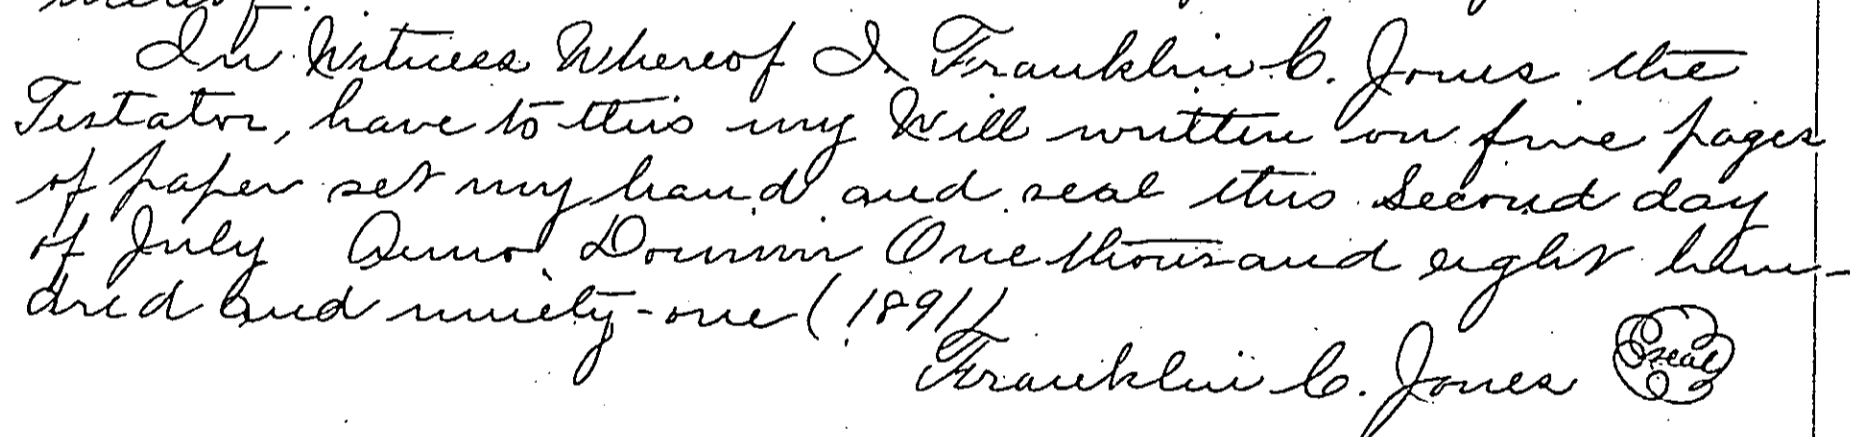 thereof.
In Witness Whereof I, Franklin C. Jones the
Testator, have to this my Will written on five pages
of paper set my hand and seal this Second day
of July Anno Domini One thousand eight hun-
dred and ninety-one (1891)
Franklin C. Jones seal